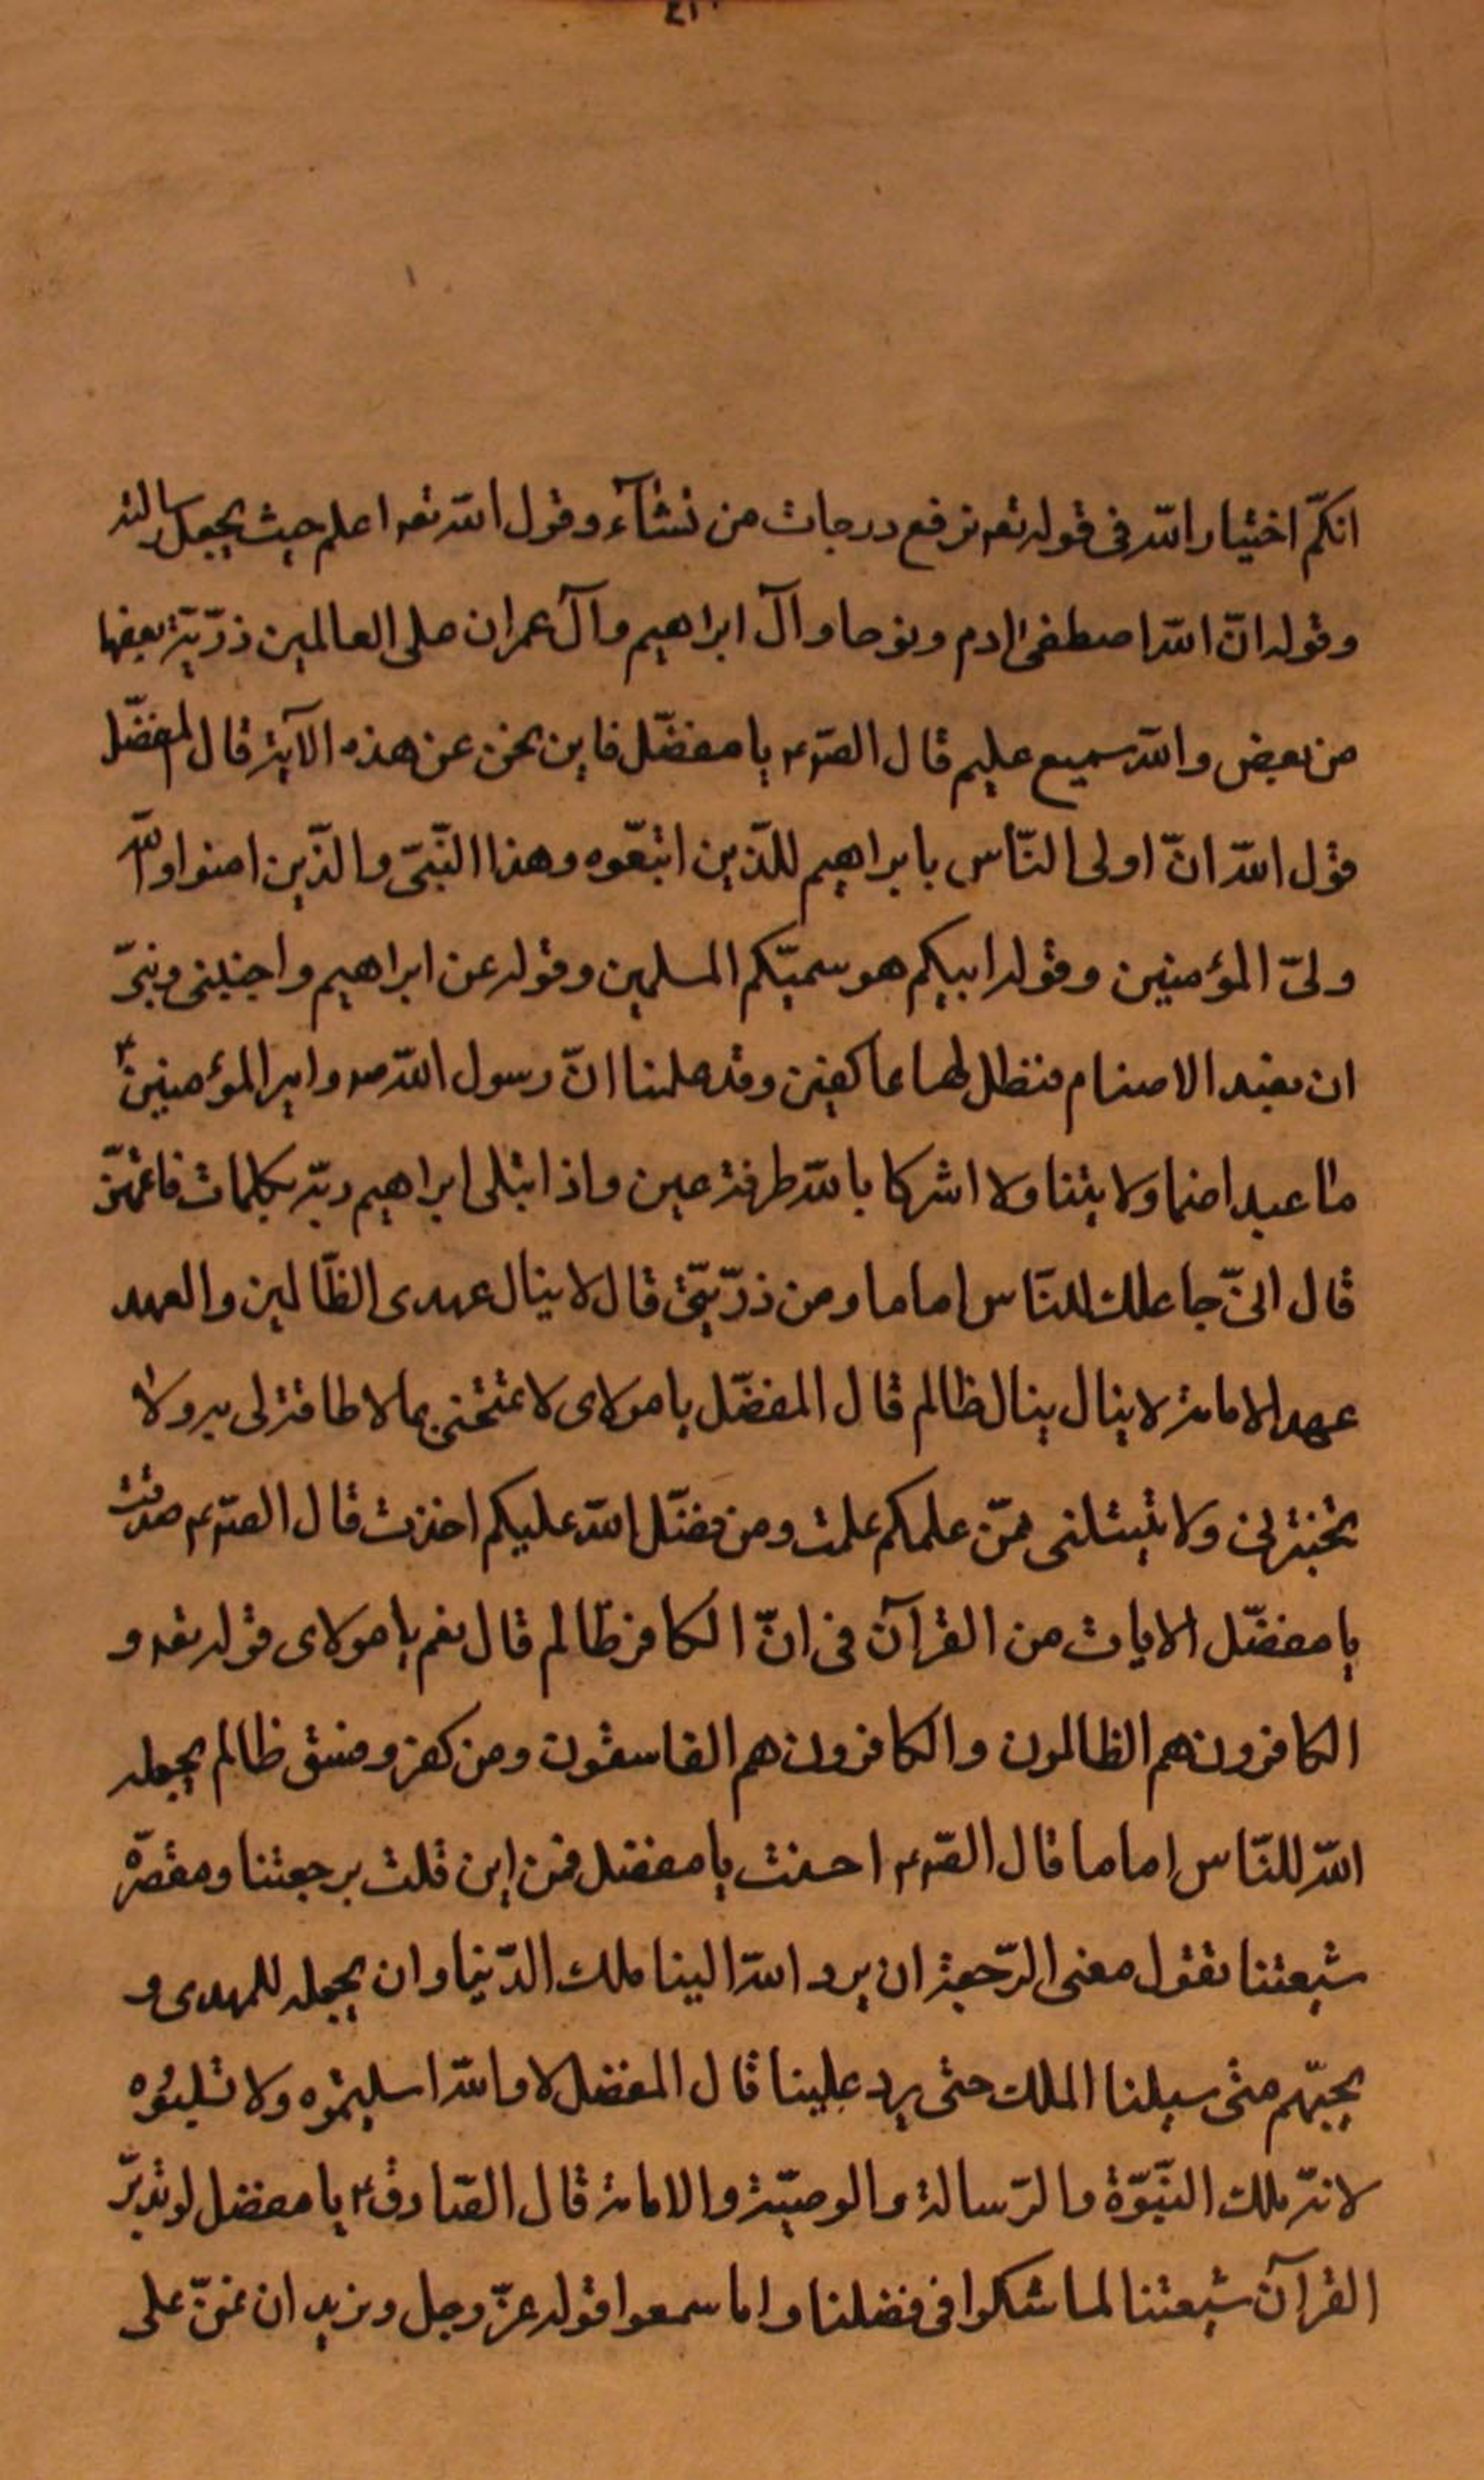 انكم اختيار الله فى قوله تعه نرفع درجات من نشآء وقول الله تعه اعلم حيث يجعل رسالته
وقوله انّ الله اصطفى ادم ونوحا وآل ابراهيم وآل عمران على العالمين ذرّيّة بعضها
من بعض والله سميع عليم قال الصّ ع يا مفضّل فاين نحن عن هذه الآية قال المفضّل
قول الله انّ اولى النّاس بابراهيم للّذين اتبعّوه وهذا النّبىّ والذّين امنوا والله
ولىّ المؤمنين وقوله ابيكم هو سميّكم المسلمين وقوله عن ابراهيم واجنبنى وبنىّ
ان نعبد الاصنام فنظل لها عاكفين وقد علمنا انّ رسول الله ص وامير المؤمنين ع
ما عبدا صنما ولا وثنا ولا اشركا بالله طرفة عين واذ ابتلى ابراهيم ربّه بكلمات فاتمّهنّ
قال انىّ جاعلك للنّاس اماما ومن ذرّيتّى قال لا ينال عهدى الظّالمين والعهد
عهد الامامة لا ينال ينال ظالم قال المفضّل يا مولاى لا تمتحنى بما لا طاقة لى به ولا
تختبرنى ولا تبتلنى فمن علمكم علمت ومن فضّل الله عليكم اخذت قال الصّ ع صدقت
يا مفضّل الايات من القرآن فى انّ الكافر ظالم قال نعم يا مولاى قوله تعه و
الكافرون هم الظالمون والكافرون هم الفاسقون ومن كفر وفسق ظالم يجعله
الله للنّاس اماما قال الصّ ع احسنت يا مفضل فمن اين قلت برجعتنا ومقصّرة
شيعتنا تقول معنى الرّجعة ان يرد الله الينا ملك الدّنيا وان يجعله للمهدى و
يحبّهم متى سيلنا الملك حتى يرد علينا قال المفضل لا والله اسليتموه ولا تسليتوه
لانّه ملك النّبوّة والرّسالة والوصيّة والامامة قال الصّادق ع يا مفضل لو تدبّر
القرآن شيعتنا لما شكوا فى فضلنا واما سمعوا قوله عزّ وجل ونريد ان نمنّ على